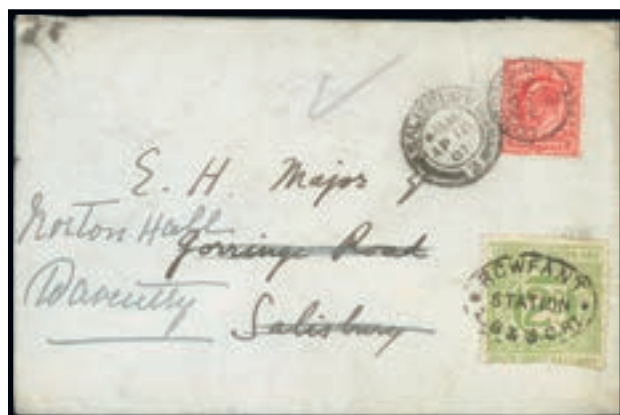 E. H. Major
Norton Hall
Gorringe Road
Daventry
Salisbury
ROWFANT
STATION
L.B. & S.C. RY.
AP 12
07